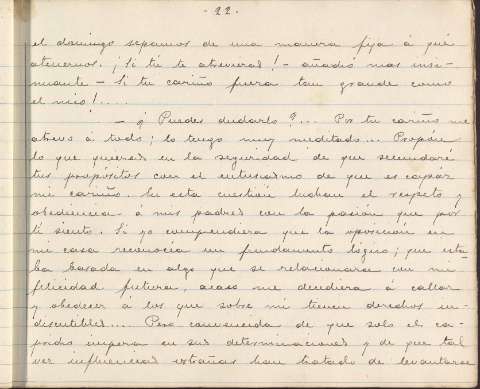 - 22 -
el domingo sepamos de una manera fija á qué
atenernos. ¡Si tú te atrevieras! - añadió mas insi-
nuante - Si tu cariño fuera tan grande como
el mio!....
- ¿Puedes dudarlo?... Por tu cariño me
atrevo á todo; lo tengo muy meditado... Propón
lo que quieras en la seguridad de que secundaré
tus propósitos con el entusiasmo de que es capáz
mi cariño. En esta cuestión luchan el respeto y
obediencia á mis padres con la pasión que por
ti siento. Si yo comprendiera que la oposición en
mi casa reconocia un fundamento lógico; que esta-
ba basada en algo que se relacionara con mi
felicidad futura, acaso me decidiera á callar
y obedecer á los que sobre mi tienen derechos in-
discutibles.... Pero convencida de que solo el ca-
pricho impera en sus determinaciones y de que tal
vez influencias estrañas han tratado de levantarse